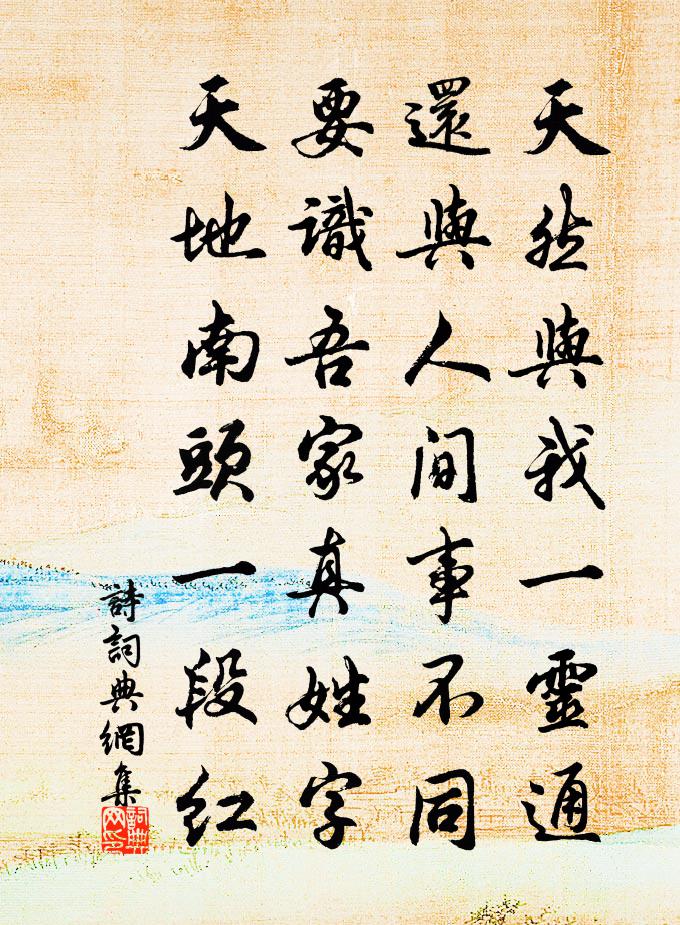 天然與我一靈通
還與人間事不同
要識吾家真姓字
天地南頭一段紅
詩詞典網集